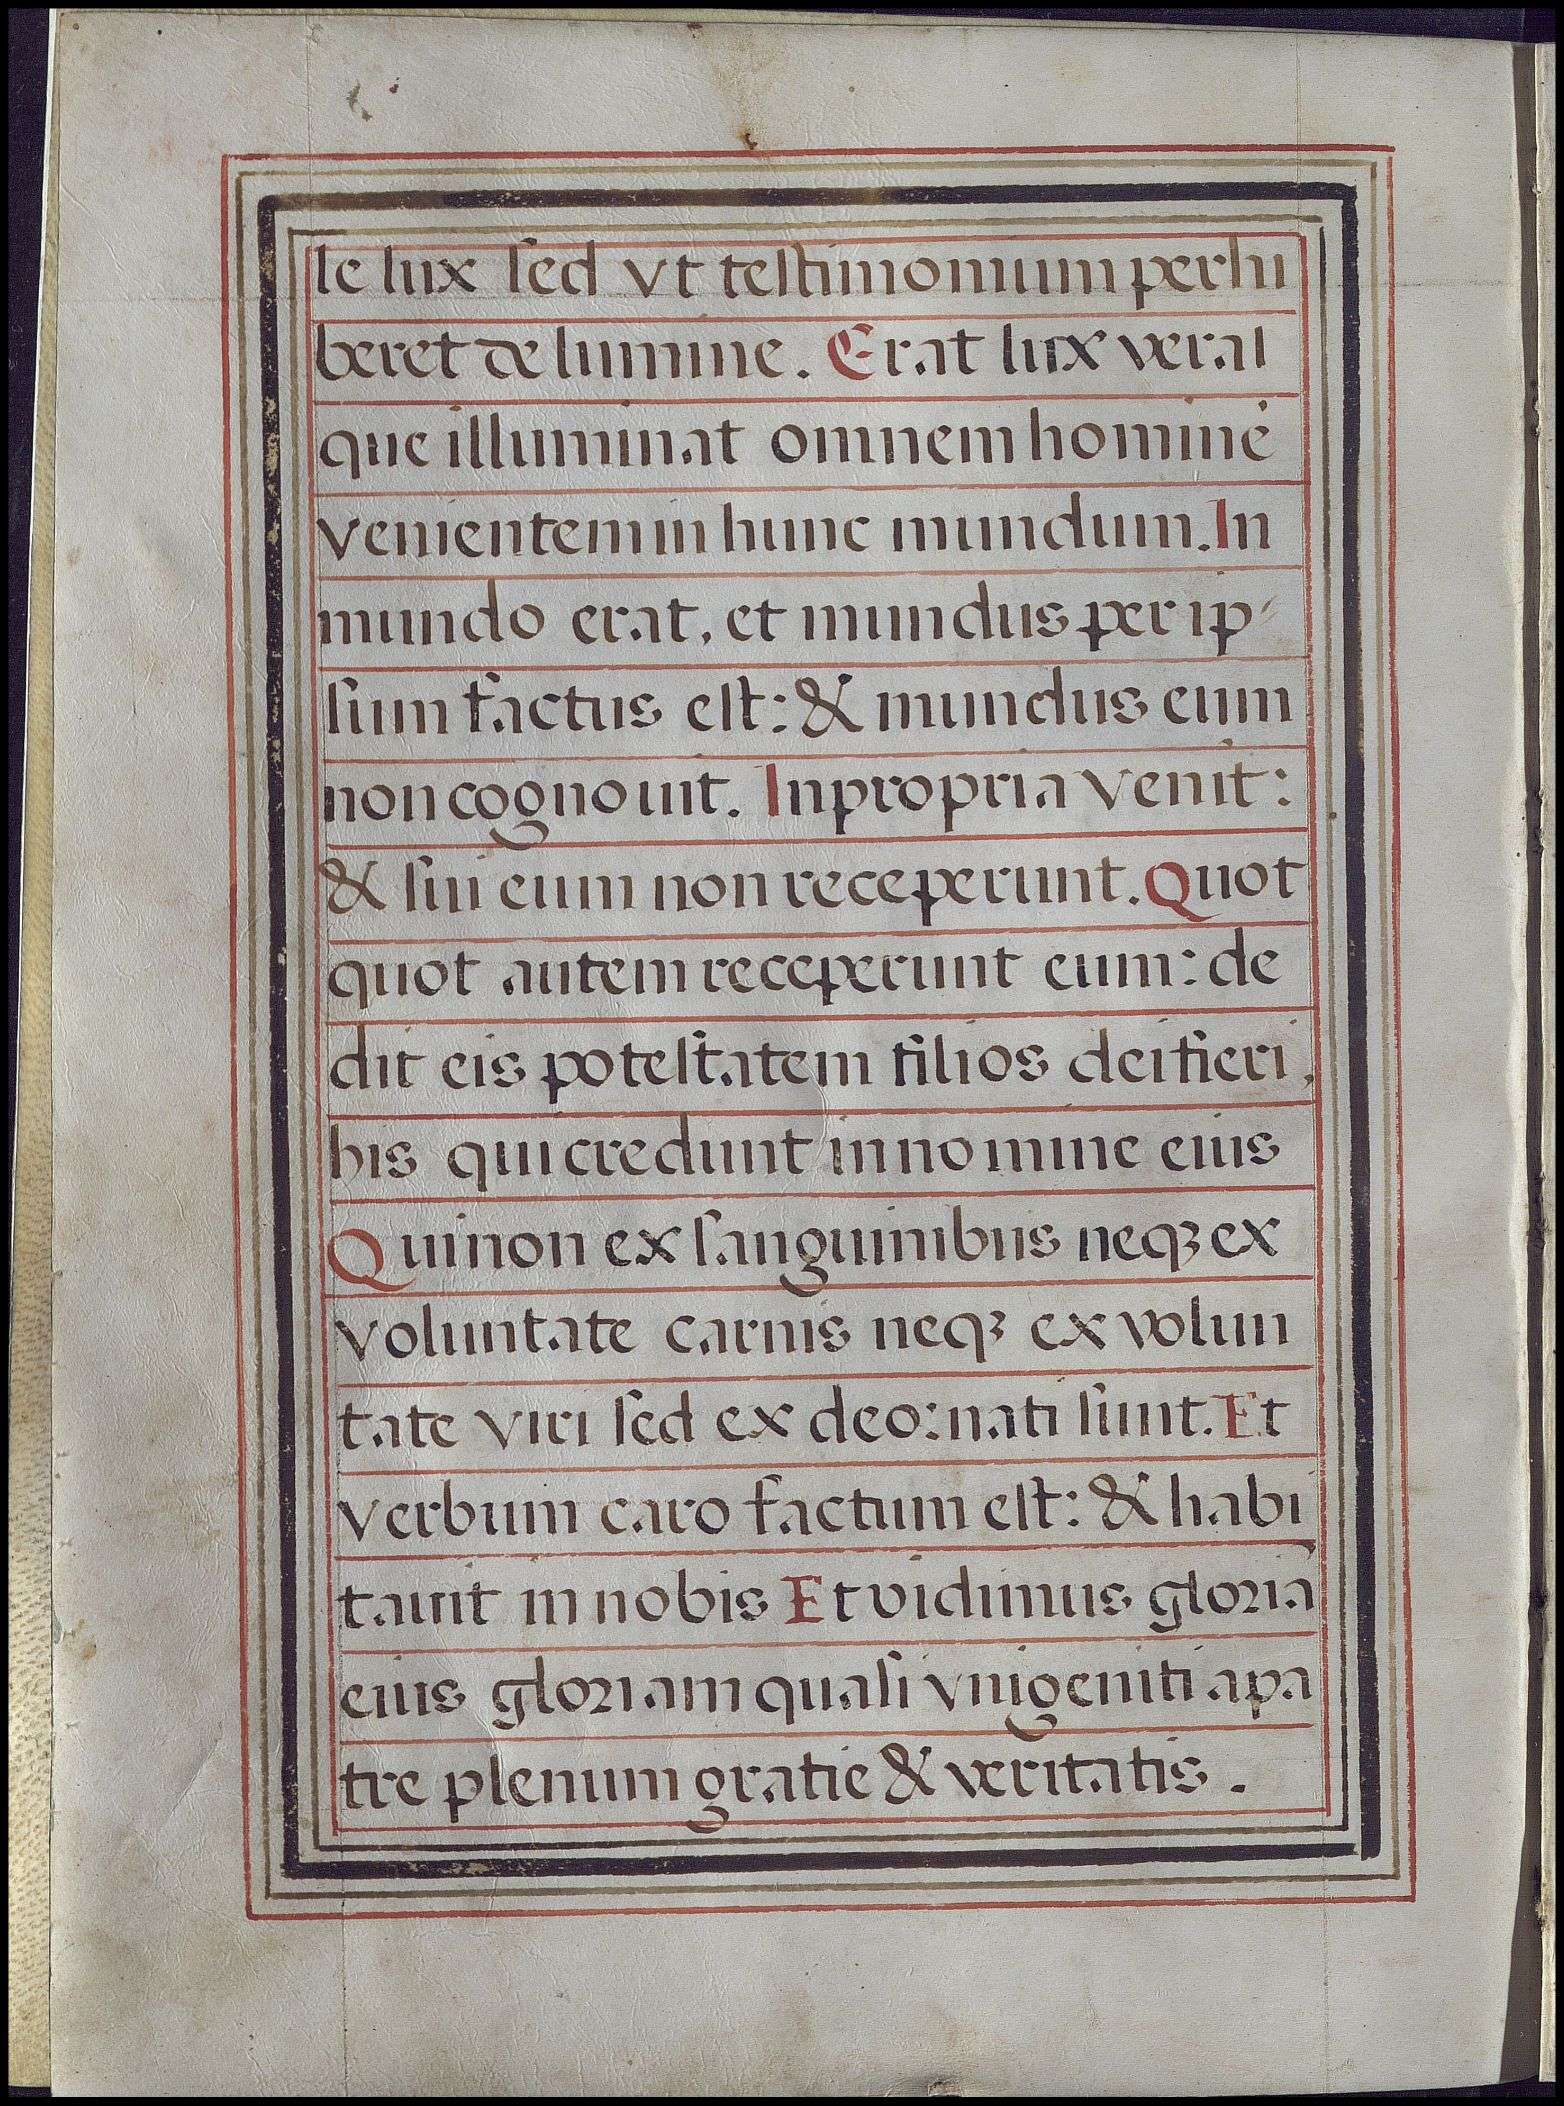 le lux sed vt testimonium perhi
beret de lumine. Erat lux vera:
que illuminat omnem hominẽ
venientem in hunc mundum. In
mundo erat, et mundus per ip-
sum factus est: & mundus eum
non cognouit. In propria venit:
& sui eum non receperunt. Quot
quot autem receperunt eum: de
dit eis potestatem filios dei fieri,
his qui credunt in nomine eius
Qui non ex sanguinibus neqꝫ ex
voluntate carnis neqꝫ ex volun
tate viri sed ex deo: nati sunt. Et
verbum caro factum est: & habi
tauit in nobis Et vidimus gloriã
eius gloriam quasi vnigeniti a pa
tre plenum gratie & veritatis.